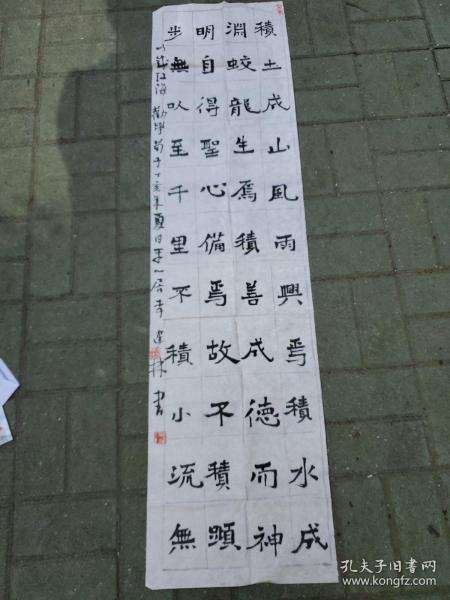 積土成山風雨興焉積水成
淵蛟龍生焉積善成德而神
明自得聖心備焉故不積
步無以至千里不積小流無
以成江海 勸學荀子丁亥年夏日 建林書
孔夫子旧书网
book.kongfz.com